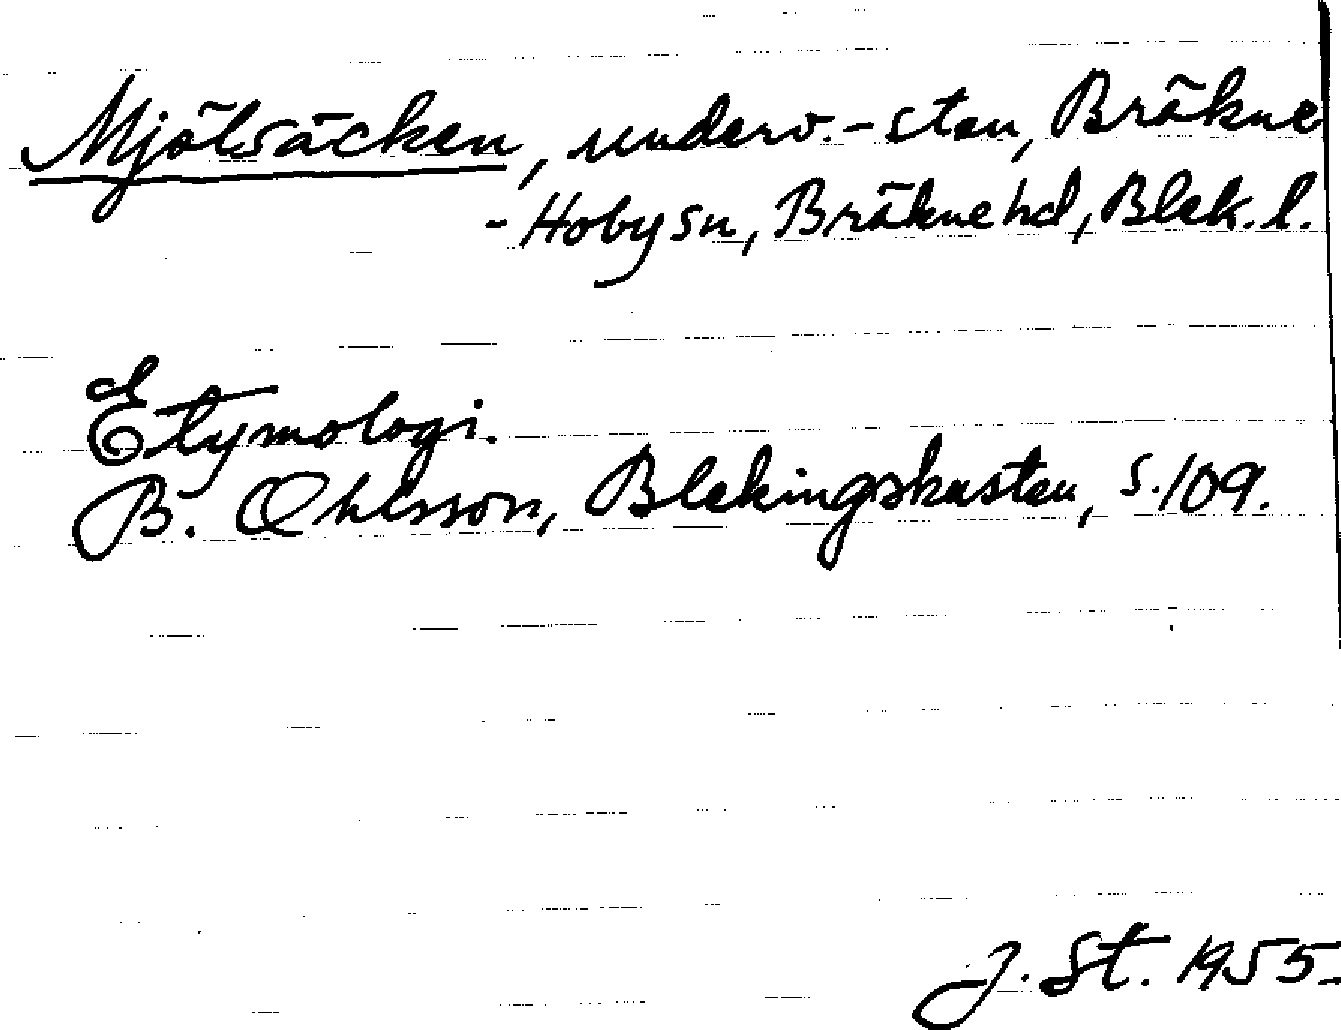 Mjölsäcken, underv.-sten, Bräkne
- Hoby sn, Bräkne hd, Blek. l.
Etymologi.
B. Ohlsson, Blekingskusten, s. 109.
J. St. 1955.